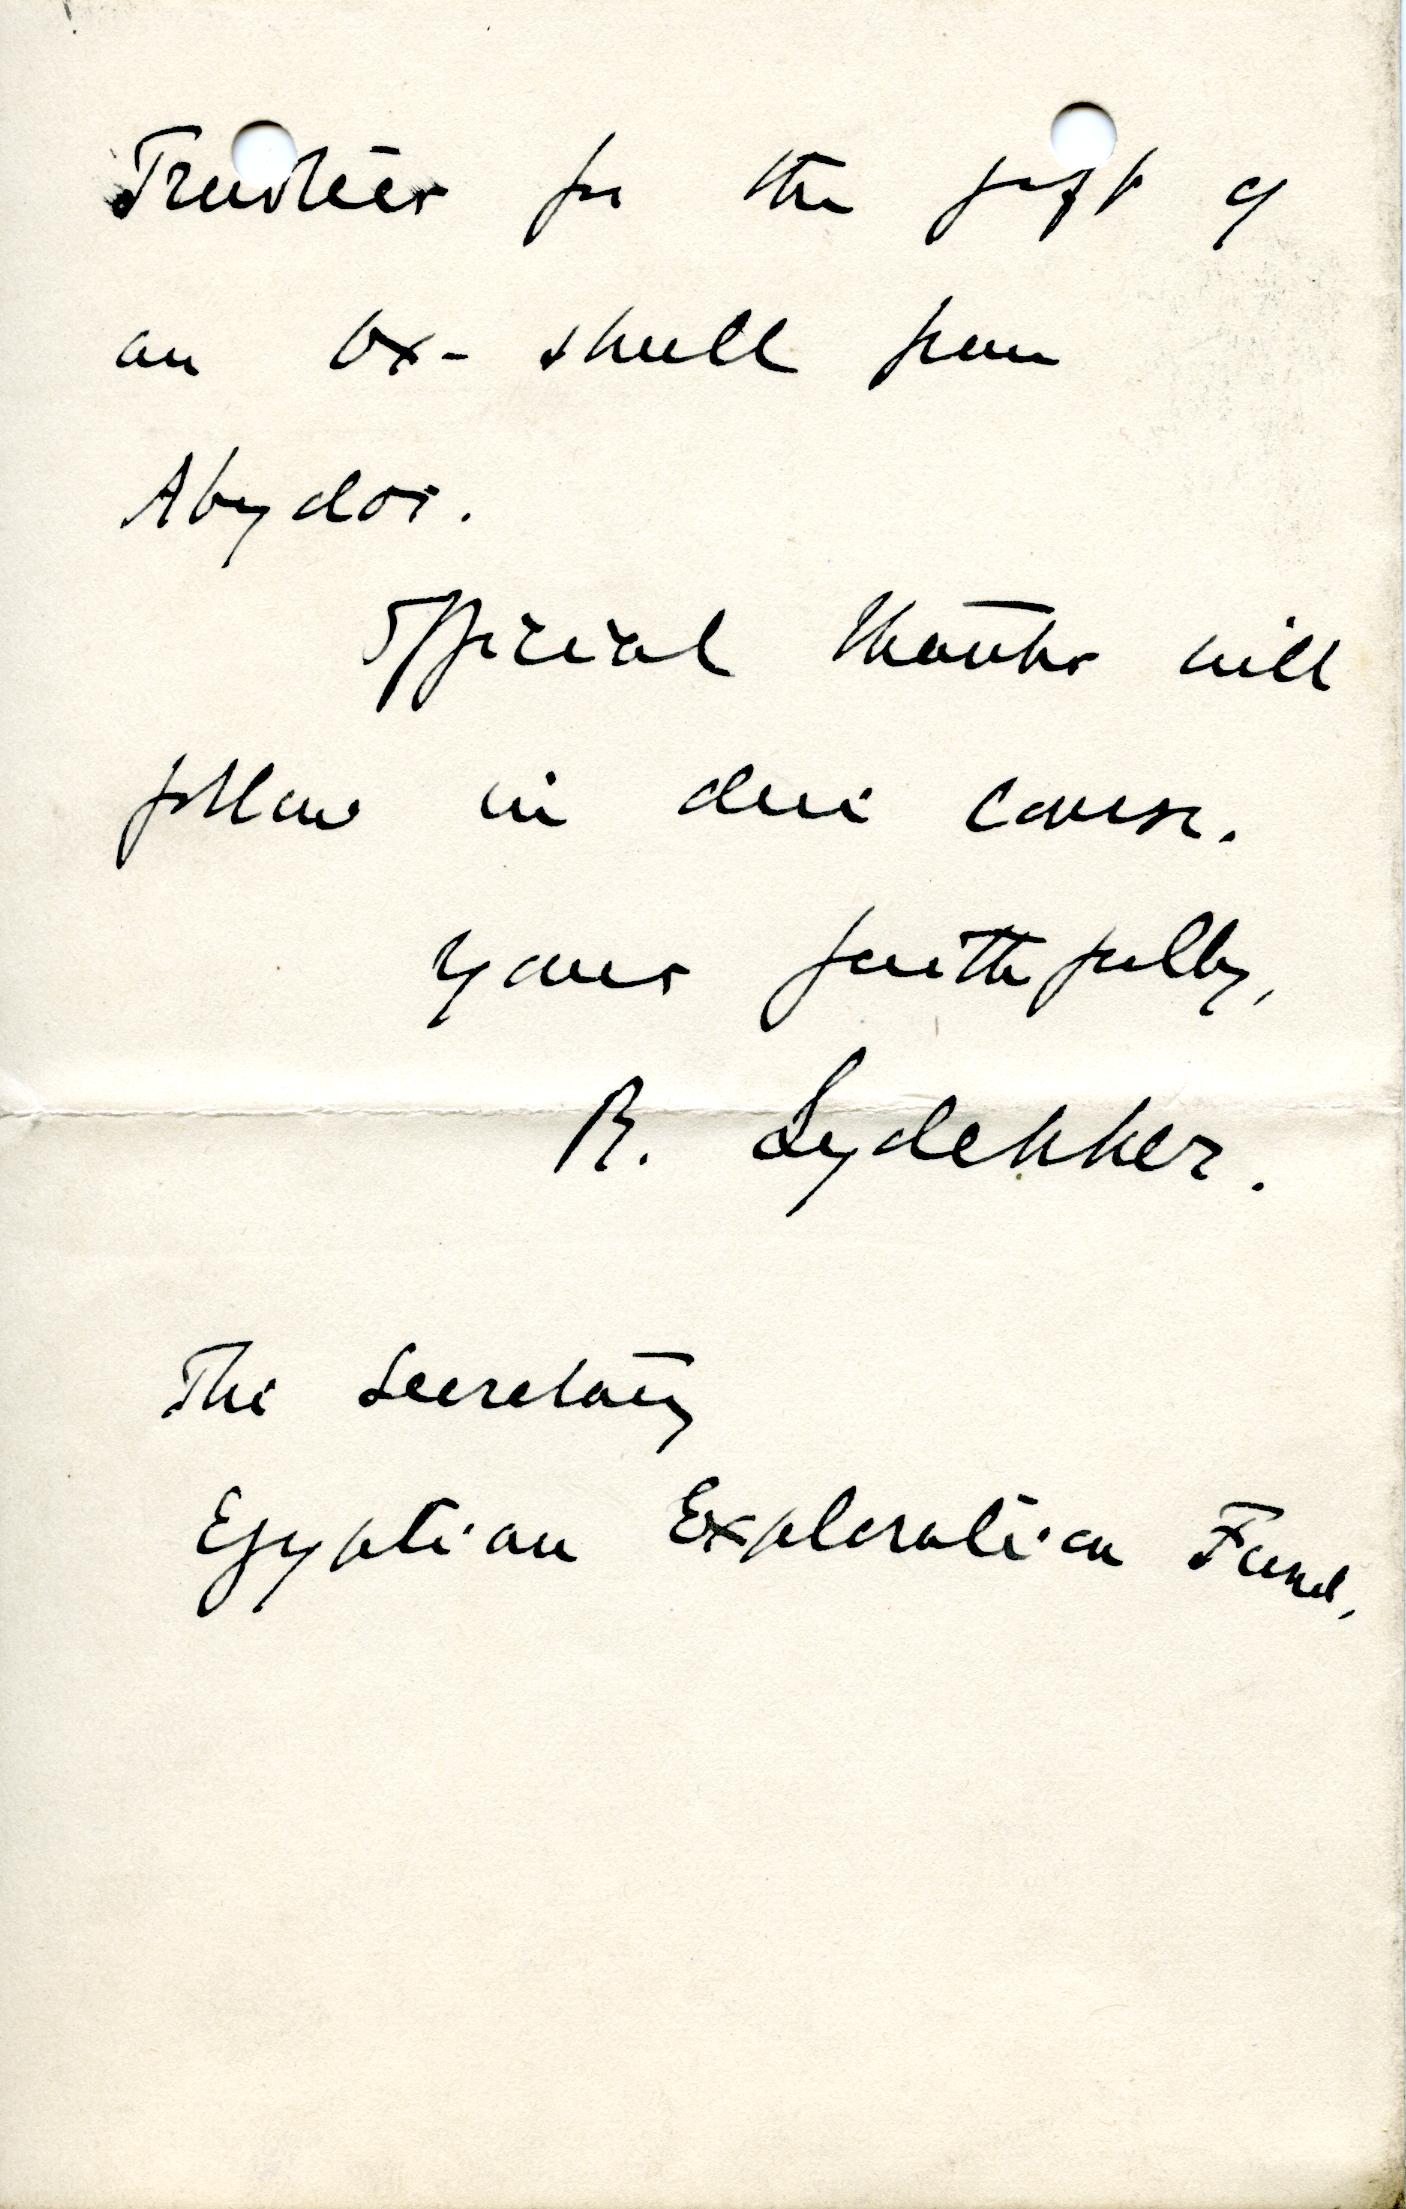 Trustees for the gift of
an Ox-skull from
Abydos.
Official thanks will
follow in due course.
Yours faithfully,
R. Lydekker.
The Secretary
Egyptian Exploration Fund,